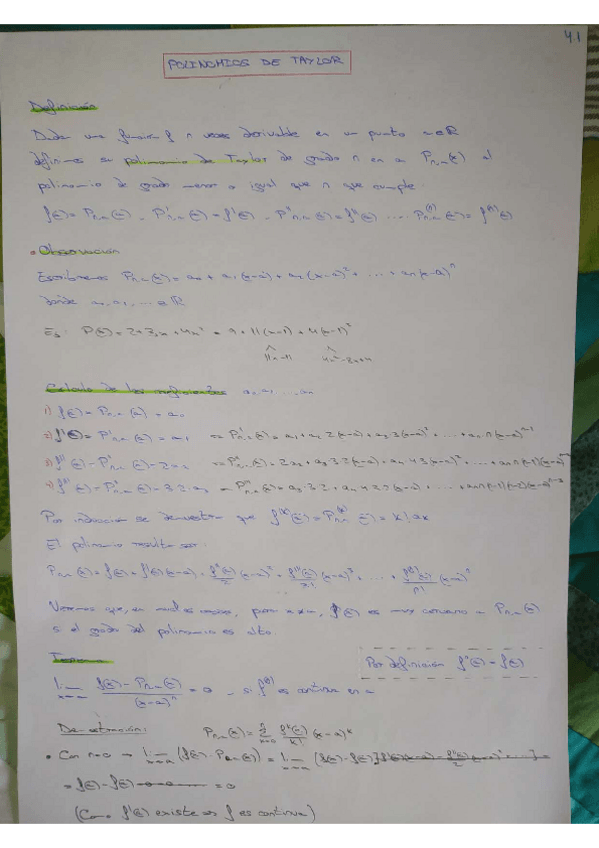 4.1
POLINOMIOS DE TAYLOR
Definición
Dada una función f n veces derivable en un punto a∈ℝ
definimos su polinomio de Taylor de grado n en a P_{n,a}(x) al
polinomio de grado menor o igual que n que cumple:
f(a) = P_{n,a}(a), P'_{n,a}(a) = f'(a), P''_{n,a}(a) = f''(a) .... P^{(n)}_{n,a}(a) = f^{(n)}(a)
• Observación
Escribiremos P_{n,a}(x) = a₀ + a₁(x-a) + a₂(x-a)² + ... + aₙ(x-a)ⁿ
donde a₀, a₁, ... ∈ ℝ
Ej: P(x) = 2 + 3x + 4x² = 9 + 11(x-1) + 4(x-1)²
11x-11 4x²-8x+4
Cálculo de los coeficientes a₀, a₁ ... aₙ
1) f(a) = P_{n,a}(a) = a₀
2) f'(a) = P'_{n,a}(a) = a₁ ⇒ P'_{n,a}(x) = a₁ + a₂ 2(x-a) + a₃ 3(x-a)² + ... + aₙ n(x-a)^{n-1}
3) f''(a) = P''_{n,a}(a) = 2a₂ ⇒ P''_{n,a}(x) = 2a₂ + a₃ 3·2(x-a) + a₄ 4·3(x-a)² + ... + aₙ n(n-1)(x-a)^{n-2}
4) f'''(a) = P'''_{n,a}(a) = 3·2·a₃ ⇒ P'''_{n,a}(x) = a₃ 3·2 + a₄ 4·3·2(x-a) + ... + aₙ n(n-1)(n-2)(x-a)^{n-3}
Por inducción se demuestra que f^{(k)}(a) = P^{(k)}_{n,a}(a) = k! aₖ
El polinomio resulta ser:
P_{n,a}(x) = f(a) + f'(a)(x-a) + f''(a)/2 (x-a)² + f'''(a)/3! (x-a)³ + ... + f^{(n)}(a)/n! (x-a)ⁿ
Veremos que, en muchos casos, para x≈a, f(x) es muy cercano a P_{n,a}(x)
si el grado del polinomio es alto.
Teorema
Por definición f⁰(x) = f(x)
lim_{x→a} (f(x) - P_{n,a}(x))/(x-a)ⁿ = 0, si f^{(n)} es continua en a
Demostración: P_{n,a}(x) = Σ_{k=0}^{n} f^{k}(a)/k! (x-a)^k
• Con n=0 → lim_{x→a} (f(x) - P_{0,a}(x)) = lim_{x→a} (f(x) - f(a)) =
= f(a) - f(a) = 0
(Como f'(a) existe ⇒ f es continua)